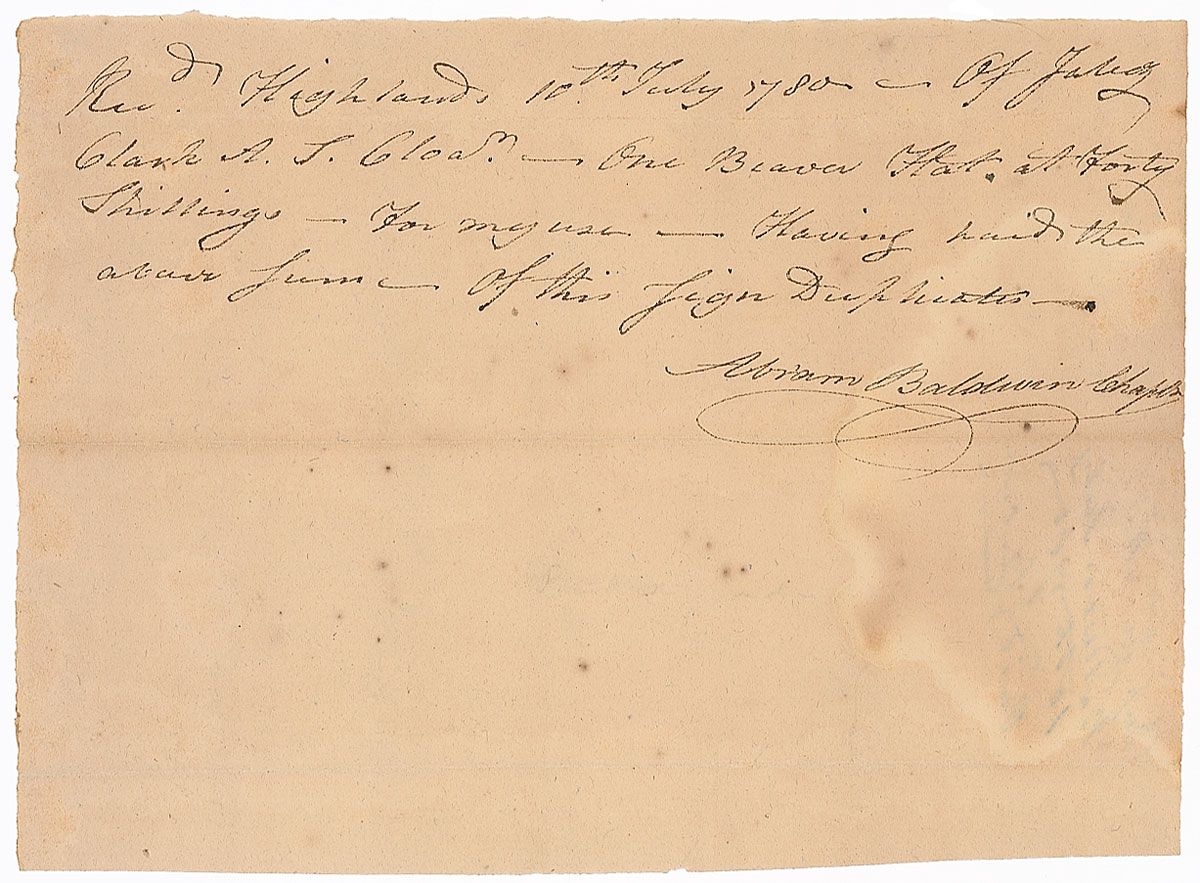 Recd. Highlands 10th July 1780 — Of
Clark A. S. Cloan. — One Beaver Hat. at Forty
Shillings — For my use — Having paid the
above Sum — Of this Sign Duplicates —
Abram Baldwin Chapln